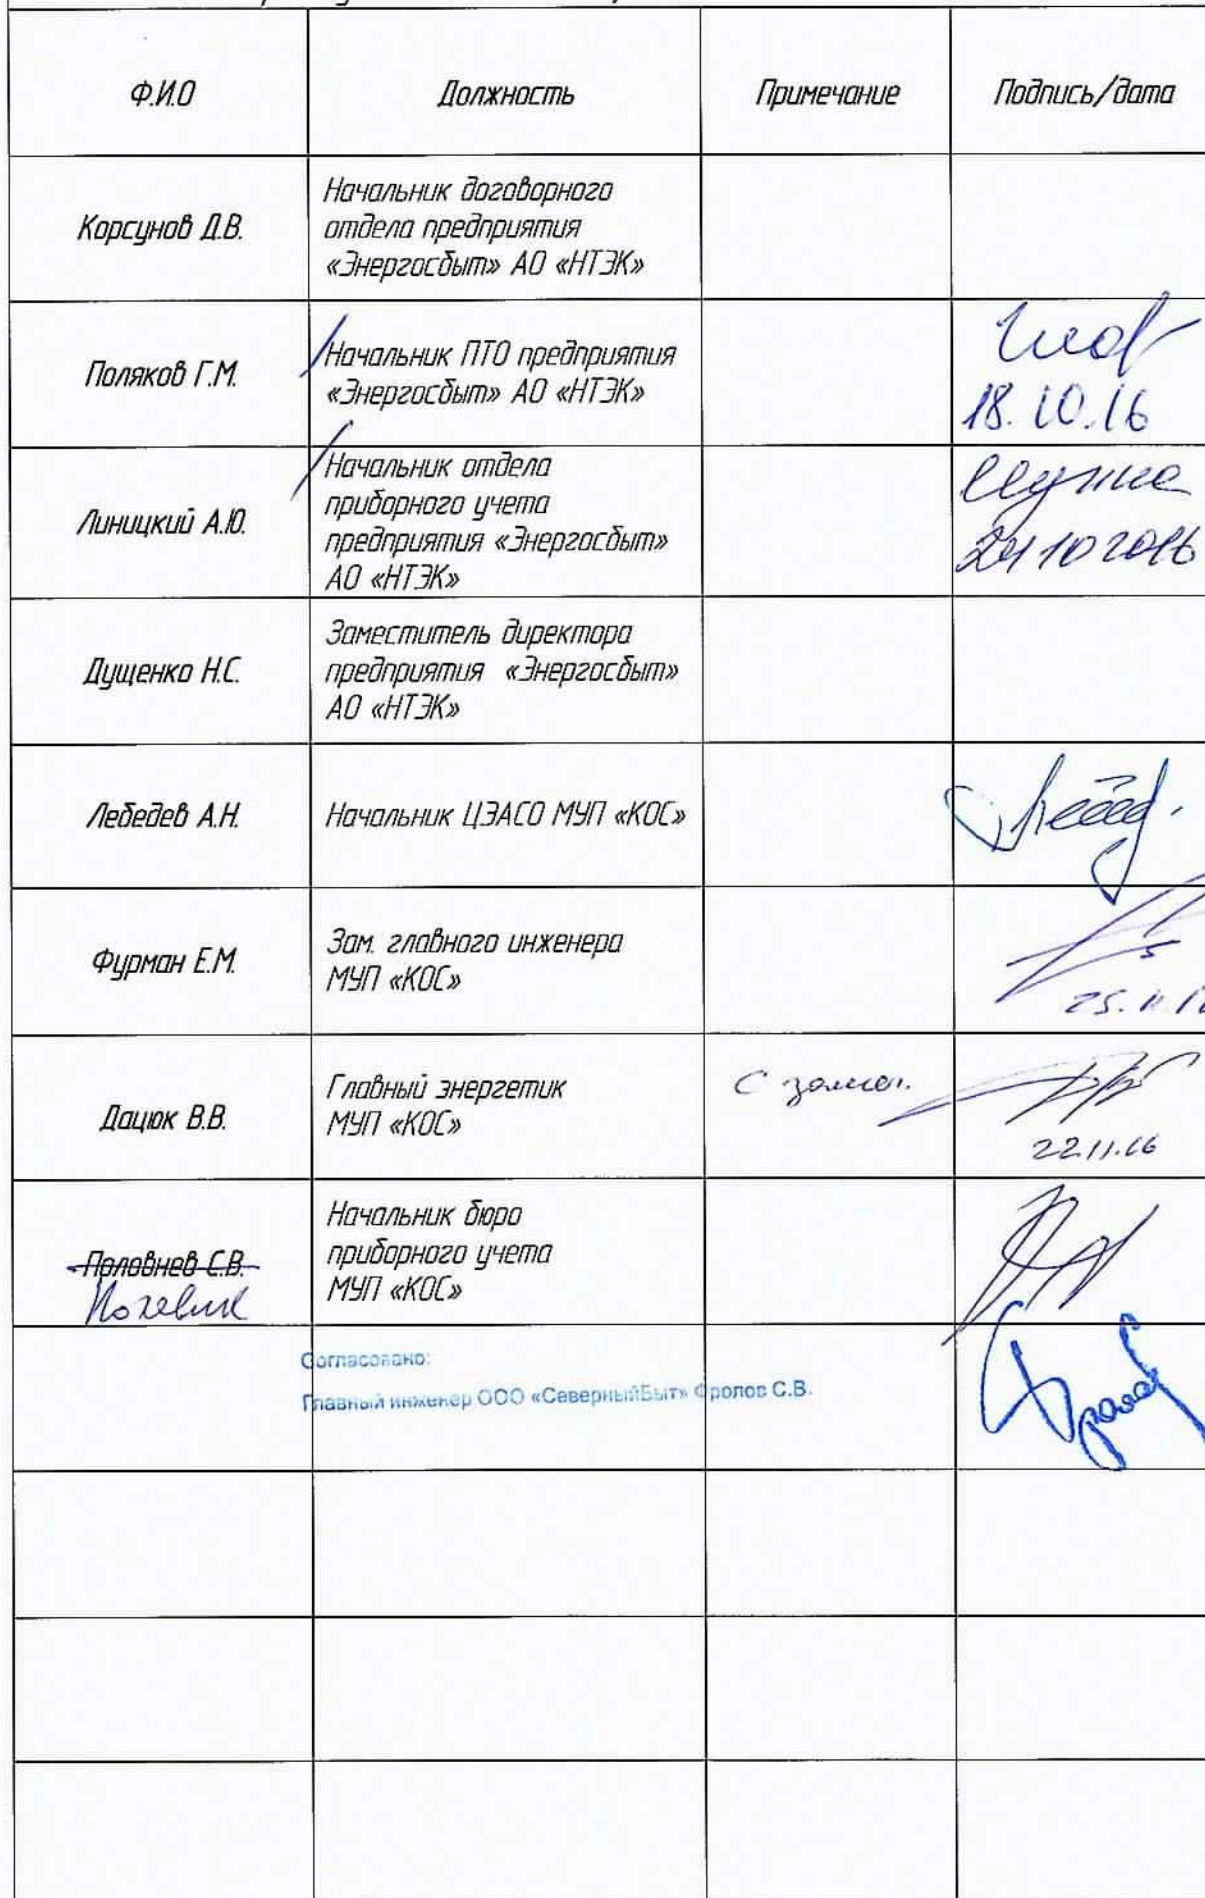 Ф.И.О
Должность
Примечание
Подпись/дата
Корсунов Д.В.
Начальник договорного
отдела предприятия
«Энергосбыт» АО «НТЭК»
Поляков Г.М.
Начальник ПТО предприятия
«Энергосбыт» АО «НТЭК»
18.10.16
Линицкий А.Ю.
Начальник отдела
приборного учета
предприятия «Энергосбыт»
АО «НТЭК»
24 10 2016
Дущенко Н.С.
Заместитель директора
предприятия «Энергосбыт»
АО «НТЭК»
Лебедев А.Н.
Начальник ЦЭАСО МУП «КОС»
Фурман Е.М.
Зам. главного инженера
МУП «КОС»
Дацюк В.В.
Главный энергетик
МУП «КОС»
С
22.11.16
Половнев С.В.
Начальник бюро
приборного учета
МУП «КОС»
Согласовано:
Главный инженер ООО «СеверныйБыт» Фролов С.В.